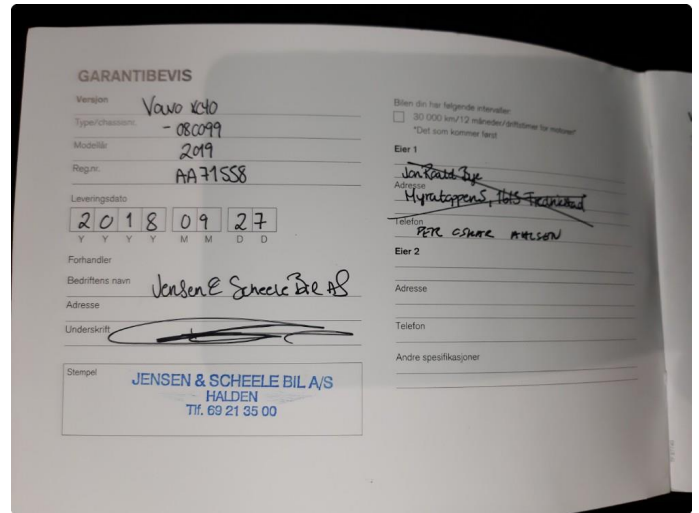 GARANTIBEVIS
Versjon Volvo XC40
Type/chassisnr. - 080099
Modellår 2019
Reg.nr. AA71558
Leveringsdato
2018 09 27
Y Y Y Y M M D D
Forhandler
Bedriftens navn Jensen & Scheele Bil AS
Adresse
Underskrift
Stempel
JENSEN & SCHEELE BIL A/S
HALDEN
Tlf. 69 21 35 00
Bilen din har følgende intervaller
30 000 km/12 måneder/driftstimer for motoren*
*Det som kommer først
Eier 1
Adresse
Telefon
PER OSKAR
Eier 2
Adresse
Telefon
Andre spesifikasjoner